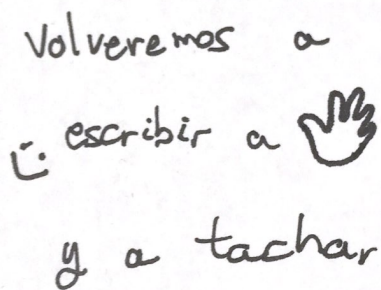 Volveremos a
escribir a
y a tachar